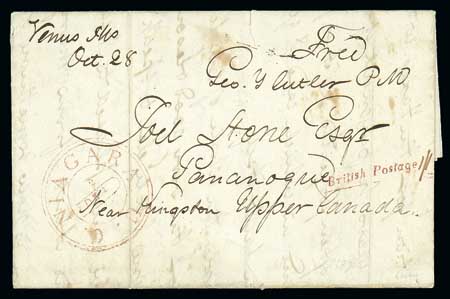 Venus Ills
Oct. 28
Free
Geo. Y Cutler P.M
Joel Stone Esqr
Gananoque
Near Kingston Upper Canada
British Postage
NIAGARA